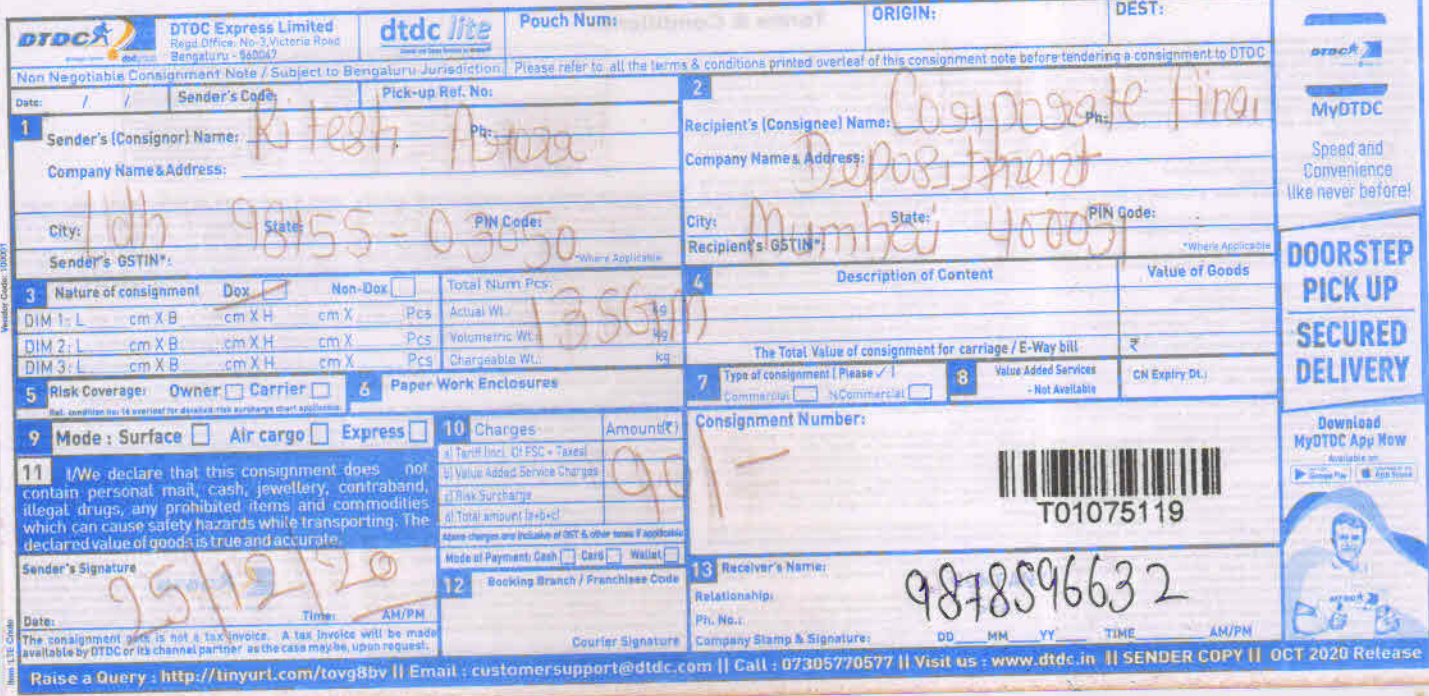 DTDC
DTDC Express Limited
Regd Office: No-3, Victoria Road
Bengaluru - 560047
dtdc lite
Pouch Num:
ORIGIN:
DEST:
Non Negotiable Consignment Note / Subject to Bengaluru Jurisdiction. Please refer to all the terms & conditions printed overleaf of this consignment note before tendering a consignment to DTDC
Date: / / Sender's Code: Pick-up Ref. No:
1 Sender's (Consignor) Name: Ritesh Arora Ph:
Company Name & Address:
City: Ldh State: 98155-03050 PIN Code:
Sender's GSTIN*: *Where Applicable
2
Recipient's (Consignee) Name: Corporate Ph:
Company Name & Address:
City: Mumbai State: PIN Code: 400051
Recipient's GSTIN*: *Where Applicable
3 Nature of consignment Dox Non-Dox
DIM 1: L cm X B cm X H cm X Pcs
DIM 2: L cm X B cm X H cm X Pcs
DIM 3: L cm X B cm X H cm X Pcs
Total Num Pcs:
Actual Wt.: kg
Volumetric Wt.: kg
Chargeable Wt.: kg
135Gm
4 Description of Content Value of Goods
The Total Value of consignment for carriage / E-Way bill ₹
5 Risk Coverage: Owner Carrier
Ref. condition no: 14 overleaf for detailed risk surcharge chart applicable
6 Paper Work Enclosures
7 Type of consignment ( Please ✓ )
Commercial N.Commercial
8 Value Added Services
- Not Available
CN Expiry Dt.:
9 Mode : Surface Air cargo Express
10 Charges Amount(₹)
a) Tariff (incl. Of FSC + Taxes)
b) Value Added Service Charges
c) Risk Surcharge
d) Total amount (a+b+c)
90/-
Above charges are inclusive of GST & other taxes if applicable
Mode of Payment: Cash Card Wallet
11 I/We declare that this consignment does not
contain personal mail, cash, jewellery, contraband,
illegal drugs, any prohibited items and commodities
which can cause safety hazards while transporting. The
declared value of goods is true and accurate.
Sender's Signature
25/12/20
Date: Time: AM/PM
The consignment note is not a tax invoice. A tax invoice will be made
available by DTDC or its channel partner as the case may be, upon request.
12 Booking Branch / Franchisee Code
Courier Signature
Consignment Number:
T01075119
13 Receiver's Name:
Relationship:
Ph. No.:
9878596632
Company Stamp & Signature: DD MM YY TIME AM/PM
DTDC
MyDTDC
Speed and
Convenience
like never before!
DOORSTEP
PICK UP
SECURED
DELIVERY
Download
MyDTDC App Now
Available on
Google Play App Store
Raise a Query : http://tinyurl.com/tovg8bv || Email : customersupport@dtdc.com || Call : 07305770577 || Visit us : www.dtdc.in || SENDER COPY || OCT 2020 Release